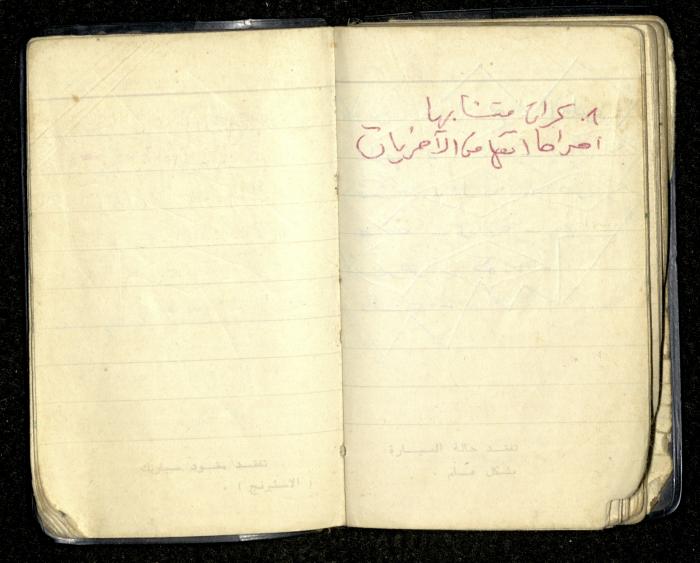 ٨. كرات متشابها
احداها اثقل من الآخريات
تفقد حالة السيارة
بشكل عام .
تفقد مقود سيارتك
( الاستيرنج ) .